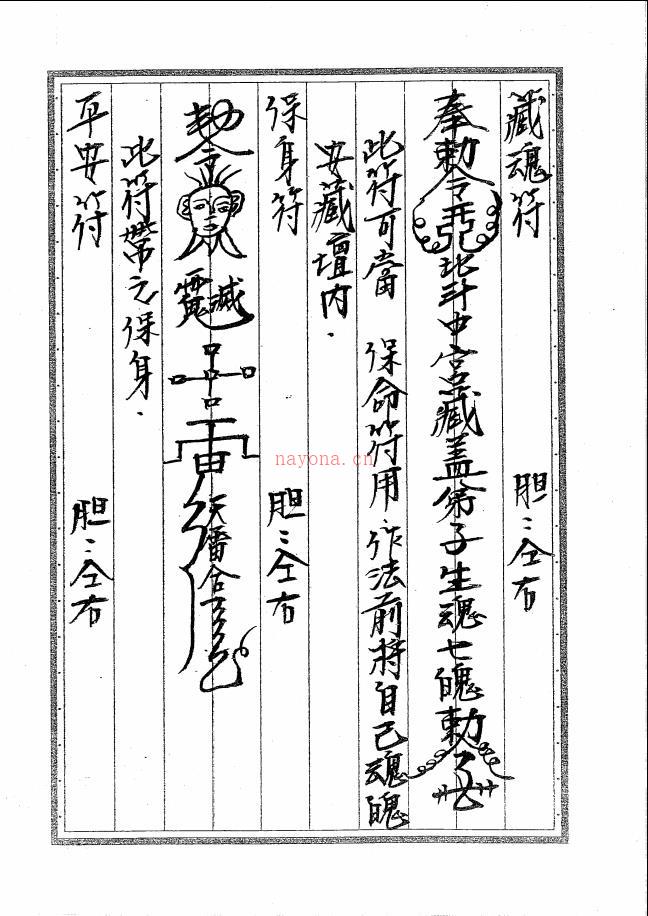 藏魂符 胆：仝右
奉勅令 北斗中宮藏盖弟子生魂七魄勅
此符可當 保命符用，作法前將自己魂魄
安藏壇内．
保身符 胆：仝右
勅令 雷
此符帶之保身．
平安符 胆：仝右
nayona.cn